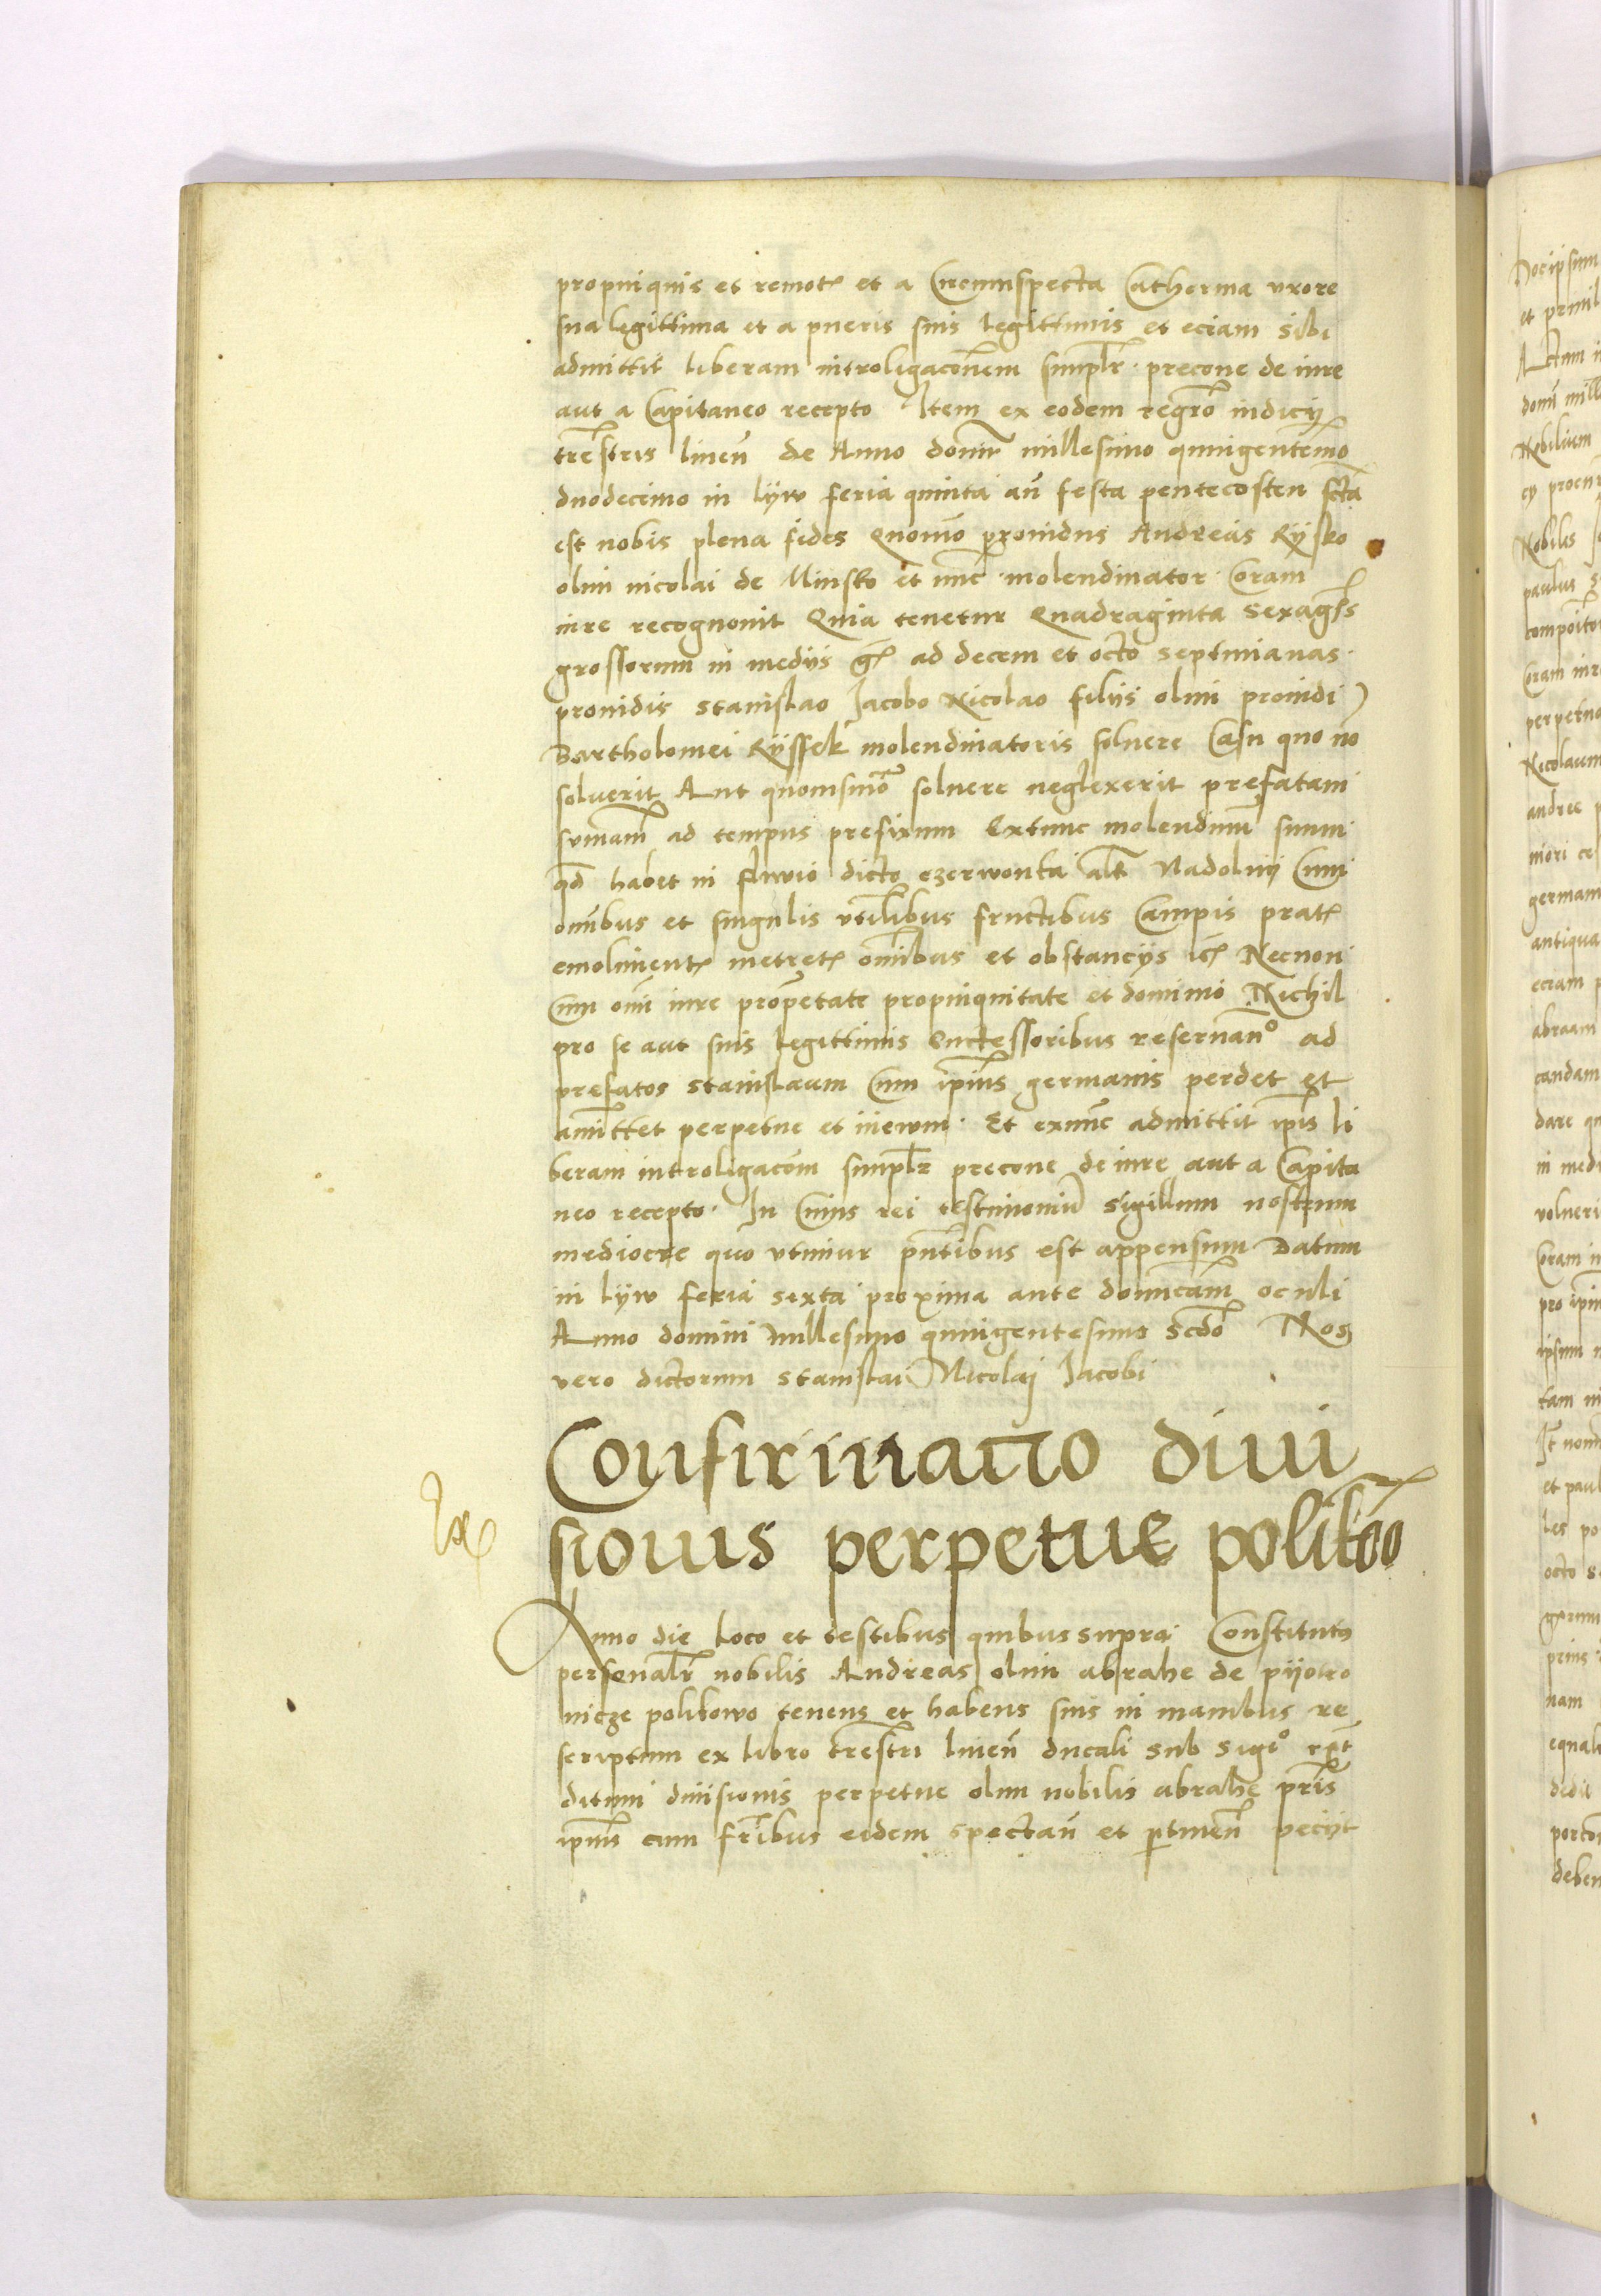 propinquis et remot(is) et a Circumspecta Catherina uxore
sua legittima et a pueris suis legittimis et eciam sibi
admittit liberam introligacōnem simpl(ite)r precone de iure
aut a Capitaneo recepto Item ex eodem regr̄o iudicij
trēstris liuen̄ de Anno domī millesimo quingentesimo
duodecimo in lijw feria quinta an̄ festa pentecosten fc̄ta
est nobis plena fides Quomō prouidus Andreas Rijsko
olim nicolai de Minsko et nūc molendinator Coram
iure recognouit Quia tenetur Quadraginta sexagēs
grossorum in medijs gr̄ ad decem et octo septimanas
prouidis Stanislao Jacobo Nicolao filijs olim prouidi
Bartholomei Rijssek molendinatoris soluere Casu quo nō
soluerit Aut quouismō soluere neglexerit prefatam
sum̄am ad tempus prefixum Extunc molendinū suum
qd̄ habet in fluuio dicto czerwonka al̄s Nadolnij Cum
om̄ibus et singulis vtil̄ibus fructibus Campis prat(is)
emoliment(is) metret(is) om̄ibus et obstancijs Necnon
Cum om̄i iure prop̄etate propinquitate et dominio Nichil
pro se aut suis legittimis Succtessoribus reseruan̄o ad
prefatos Stanislaum Cum ip̄ius germanis perdet et
amittet perpetue et in ewm Et exnūc admittit ip̄is li
beram introligacōm simpl(ite)r precone de iure aut a Capita
neo recepto In Cuius rei testimoniū Sigillum nostrum
mediocre quo vtimur pn̄tibus est appensum Datum
in lijw feria sexta proxima ante dominicam oculi
Anno domini Millesimo quingentesimo scdō Nos
vero dictorum Stanislai Nicolaj Jacobi
Confirmatio diui
Ex
sionis perpetue politōo
Anno die loco et testibus quibus supra Constitutus
personalr̄ nobilis Andreas olim abrahe de pijotro
nicze politowo tenens et habens suis in manibus re
scriptum ex libro trēstri liuen̄ ducali sub sigō
ditum diuisionis perpetue olim nobilis abrahe pr̄is
ip̄ius cum fr̄ibus eidem spectan̄ et ptinen̄ pecijt